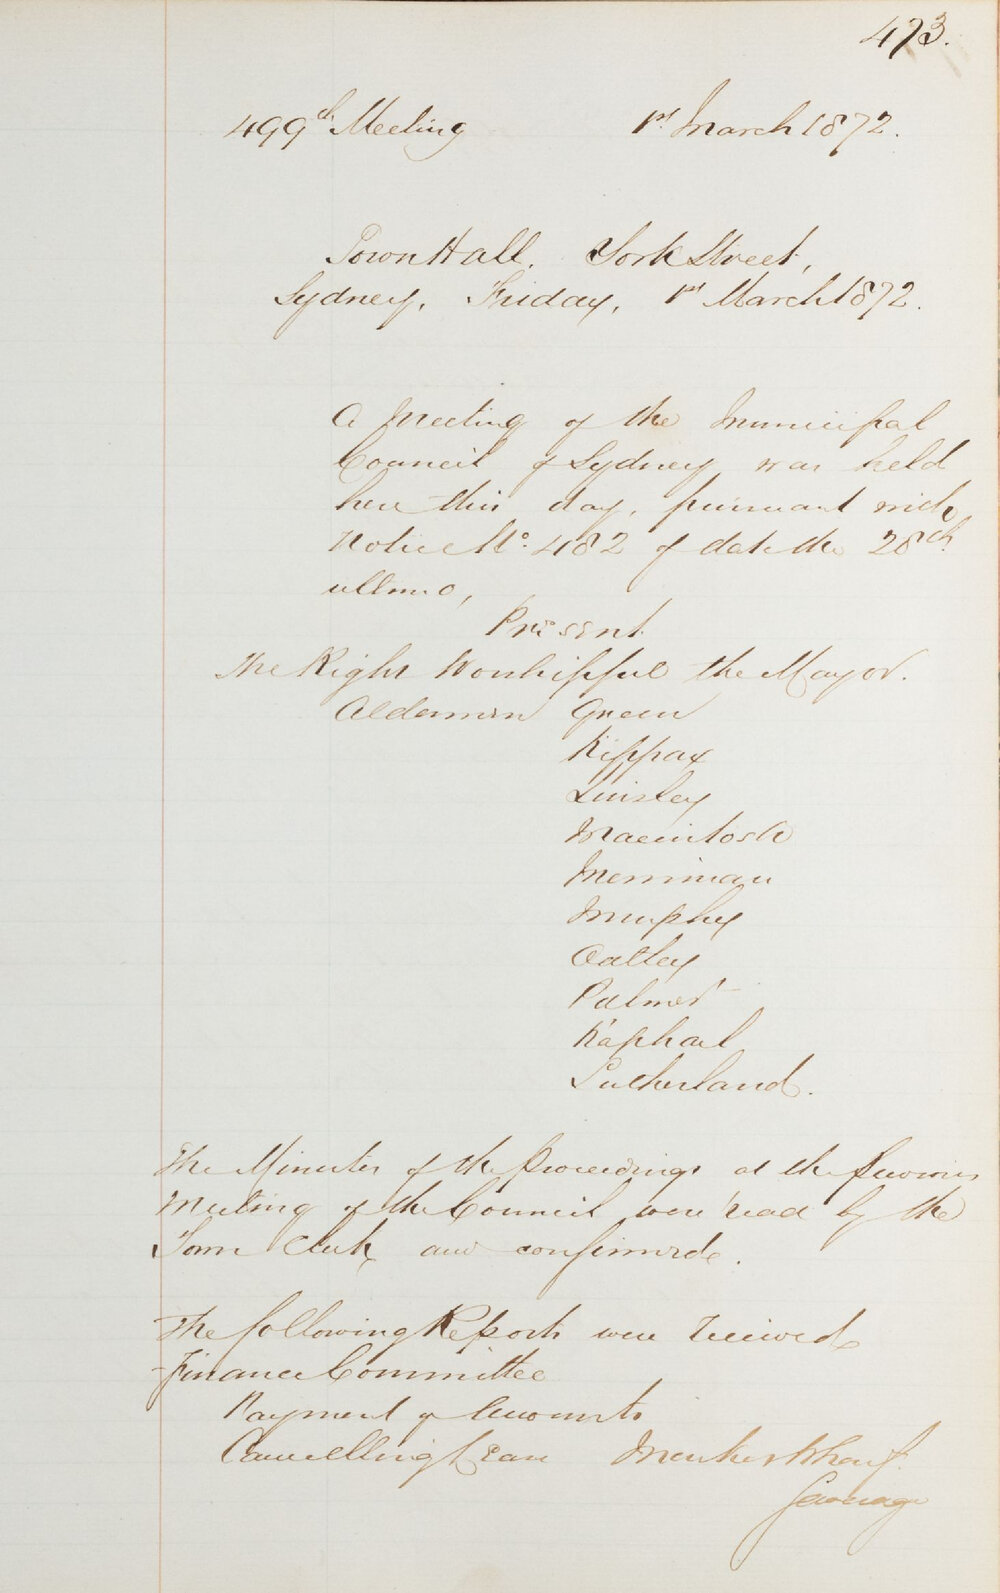 473.
499th Meeting 1st March 1872.
Town Hall. York Street,
Sydney, Friday, 1st March 1872.
A Meeting of the Municipal
Council of Sydney was held
here this day, pursuant with
Notice No. 482 of date the 28th
ultimo,
Present
The Right Worshipful the Mayor.
Aldermen Green
Kippax
Linsley
Macintosh
Merriman
Murphy
Oatley
Palmer
Raphael
Sutherland.
The Minutes of the Proceedings at the previous
Meeting of the Council were read by the
Town Clerk and confirmed.
The following Reports were received
Finance Committee
Payment of Accounts
Cancelling Lease Market Wharf.